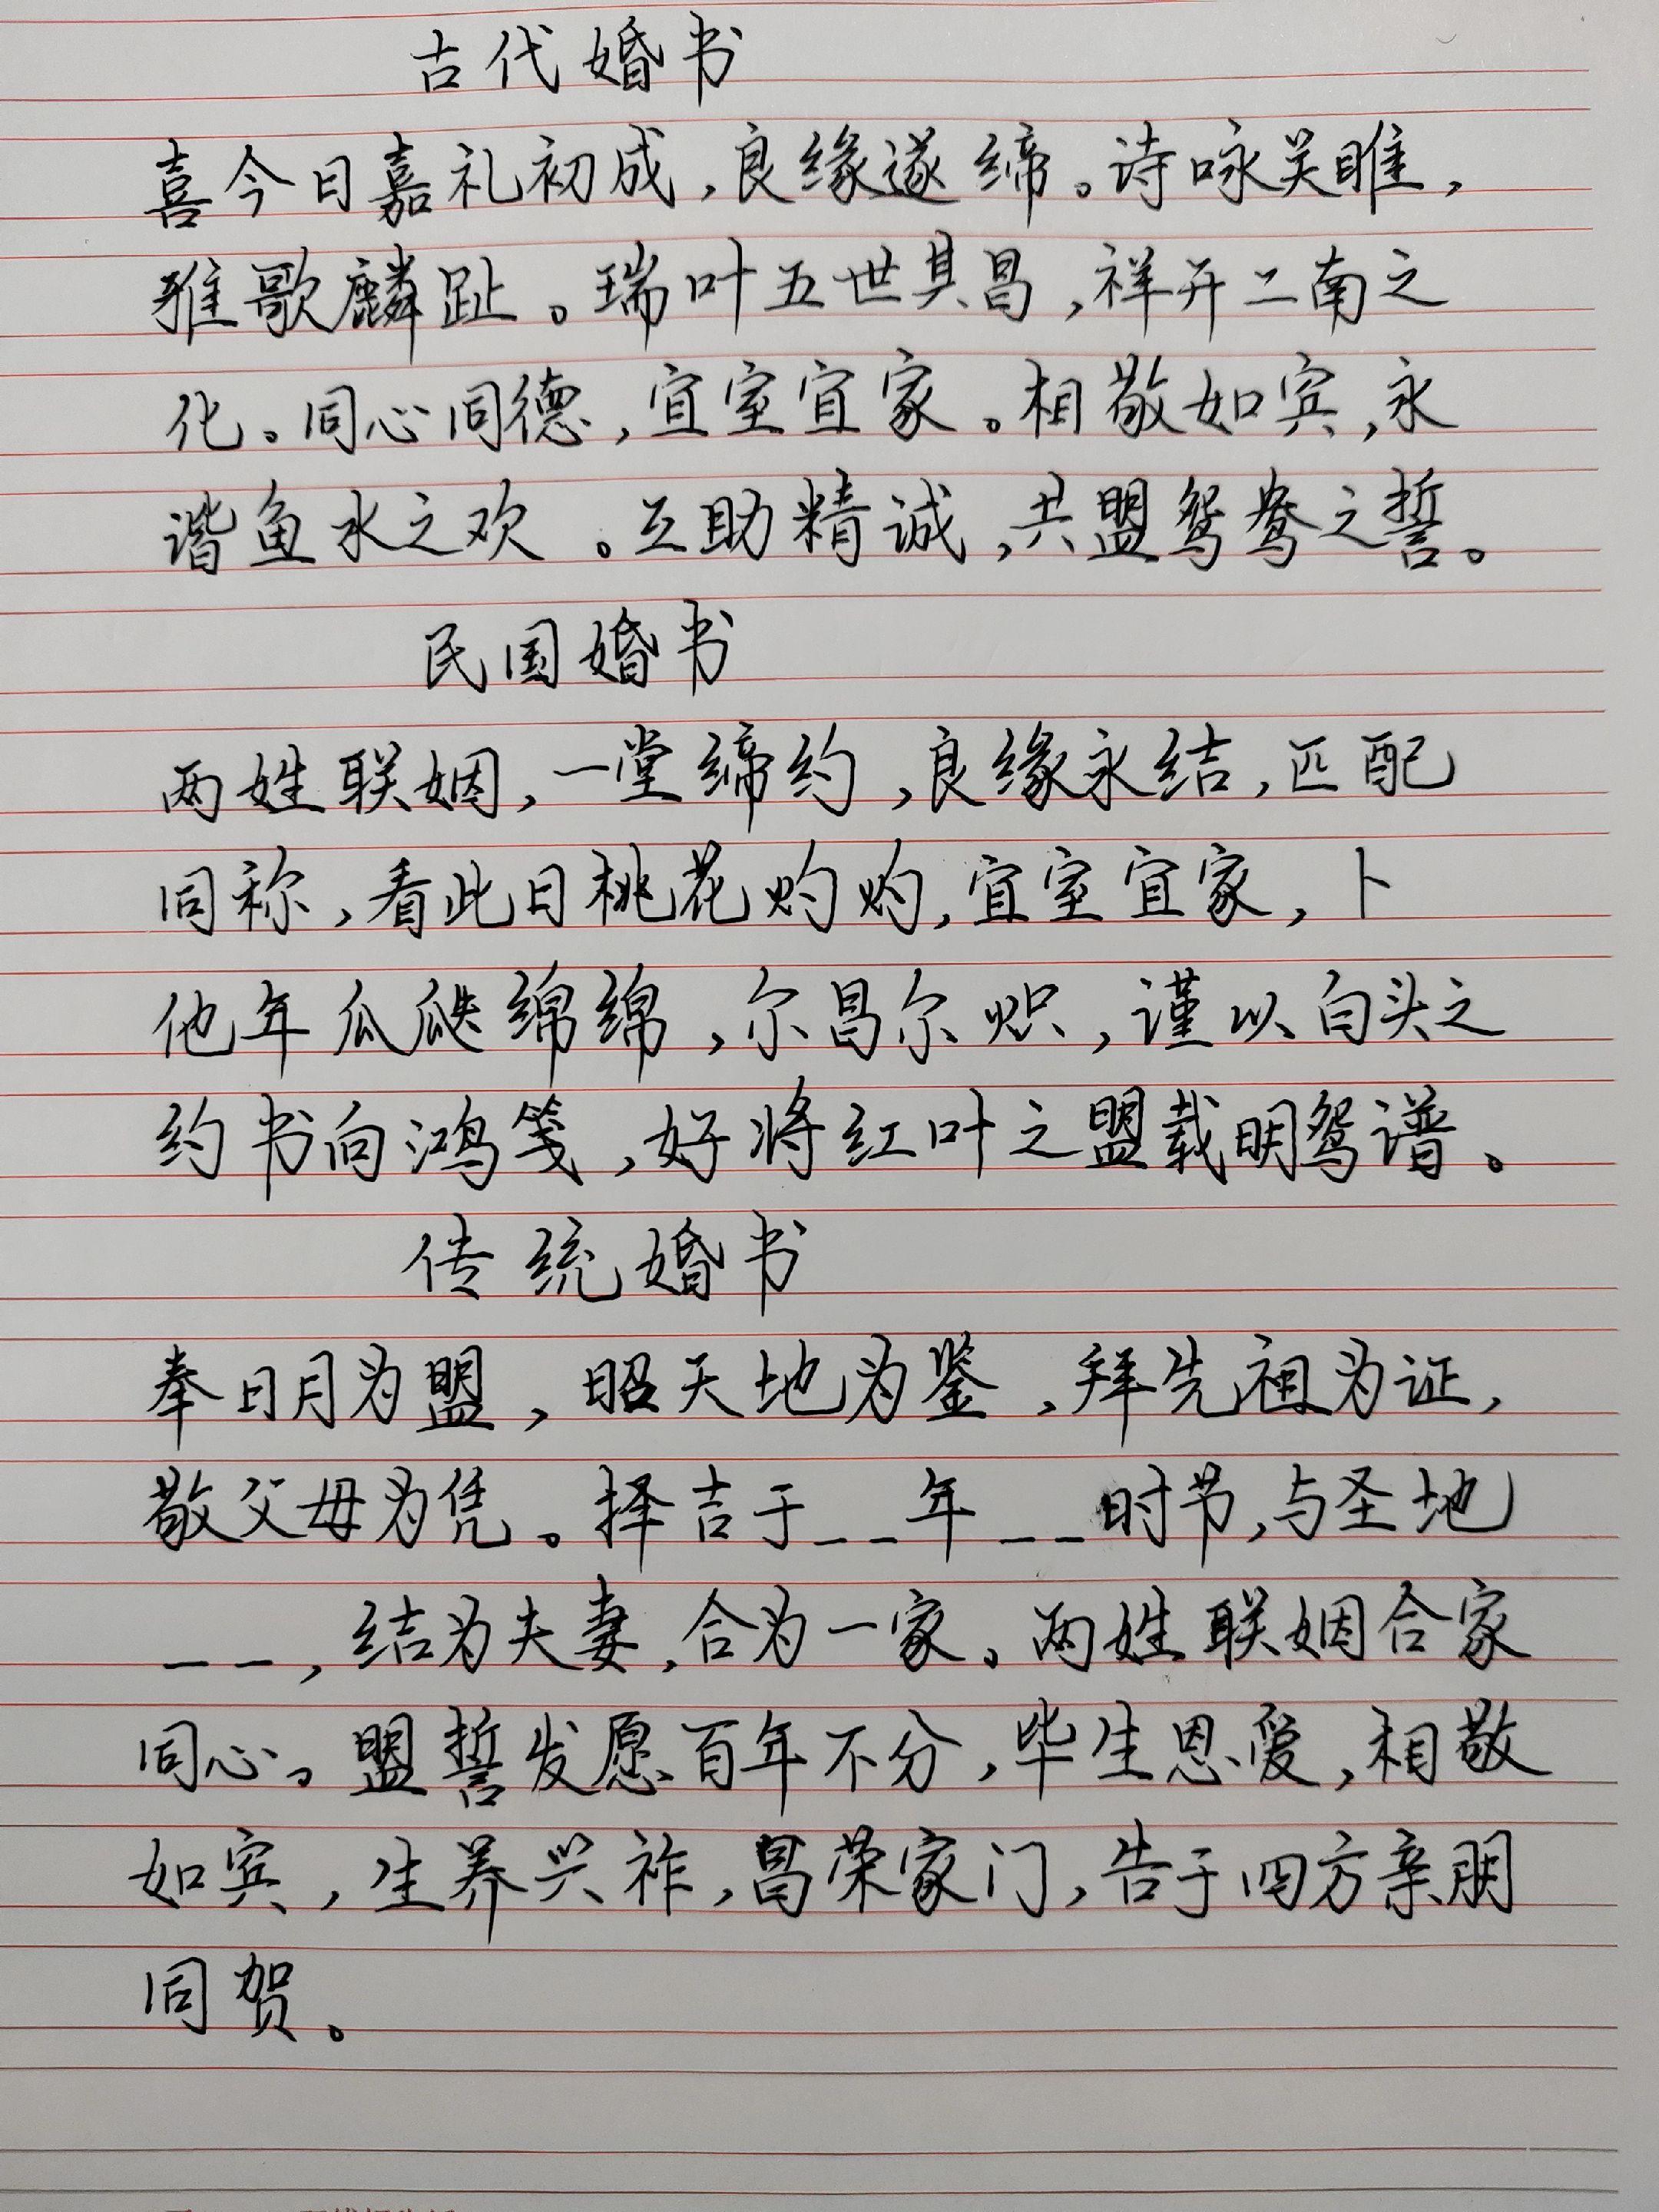 古代婚书
喜今日嘉礼初成,良缘遂缔。诗咏关雎,
雅歌麟趾。瑞叶五世其昌,祥开二南之
化。同心同德,宜室宜家。相敬如宾,永
谐鱼水之欢。互助精诚,共盟鸳鸯之誓。
民国婚书
两姓联姻,一堂缔约,良缘永结,匹配
同称,看此日桃花灼灼,宜室宜家,卜
他年瓜瓞绵绵,尔昌尔炽,谨以白头之
约书向鸿笺,好将红叶之盟载明鸳谱。
传统婚书
奉日月为盟,昭天地为鉴,拜先祖为证,
敬父母为凭。择吉于__年__时节,与圣地
__,结为夫妻,合为一家。两姓联姻合家
同心。盟誓发愿百年不分,毕生恩爱,相敬
如宾,生养兴祚,昌荣家门,告于四方亲朋
同贺。